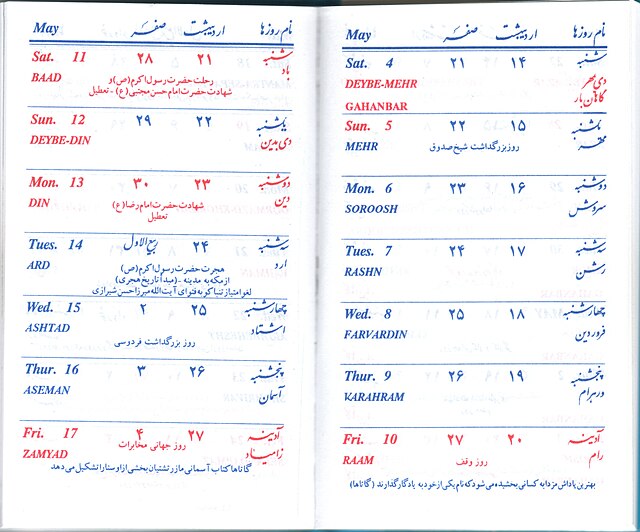 May صفر اردیبهشت نام روزها
Sat. 4 ۲۱ ۱۴ شنبه
DEYBE-MEHR دی‌بمهر
GAHANBAR گاهان‌بار
Sun. 5 ۲۲ ۱۵ یکشنبه
MEHR روز بزرگداشت شیخ صدوق مهر
Mon. 6 ۲۳ ۱۶ دوشنبه
SOROOSH سروش
Tues. 7 ۲۴ ۱۷ سه‌شنبه
RASHN رشن
Wed. 8 ۲۵ ۱۸ چهارشنبه
FARVARDIN فروردین
Thur. 9 ۲۶ ۱۹ پنجشنبه
VARAHRAM ورهرام
Fri. 10 ۲۷ ۲۰ آدینه
RAAM روز وقف رام
بهترین پاداش مزدا به کسانی بخشیده می‌شود که نام یکی از خود به یادگار گذارند (گاتاها)
May صفر اردیبهشت نام روزها
Sat. 11 ۲۸ ۲۱ شنبه
BAAD رحلت حضرت رسول اکرم (ص) و باد
شهادت حضرت امام حسن مجتبی (ع) - تعطیل
Sun. 12 ۲۹ ۲۲ یکشنبه
DEYBE-DIN دی‌بدین
Mon. 13 ۳۰ ۲۳ دوشنبه
DIN شهادت حضرت امام رضا (ع) دین
تعطیل
Tues. 14 ربیع‌الاول ۲۴ سه‌شنبه
ARD هجرت حضرت رسول اکرم (ص) ارد
از مکه به مدینه - (مبدأ تاریخ هجری)
لغو امتیاز تنباکو به فتوای آیت‌الله میرزا حسن شیرازی
Wed. 15 ۲ ۲۵ چهارشنبه
ASHTAD روز بزرگداشت فردوسی اشتاد
Thur. 16 ۳ ۲۶ پنجشنبه
ASEMAN آسمان
Fri. 17 ۴ ۲۷ آدینه
ZAMYAD روز جهانی مخابرات زامیاد
گاتاها کتاب آسمانی ما زرتشتیان بخشی از اوستا را تشکیل می‌دهد